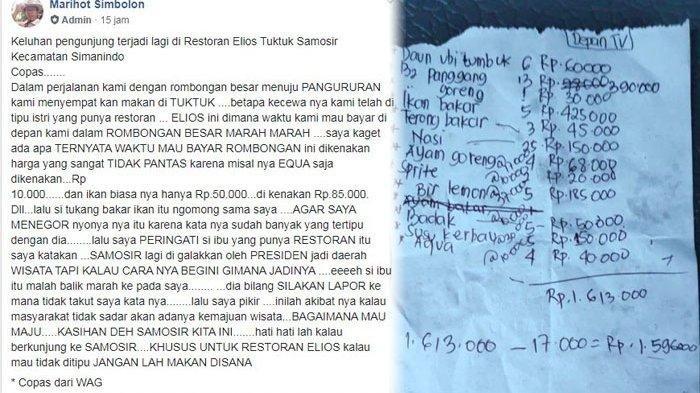 Marihot Simbolon
Admin • 15 jam
Keluhan pengunjung terjadi lagi di Restoran Elios Tuktuk Samosir
Kecamatan Simanindo
Copas.......
Dalam perjalanan kami dengan rombongan besar menuju PANGURURAN
kami menyempat kan makan di TUKTUK ....betapa kecewa nya kami telah di
tipu istri yang punya restoran ... ELIOS ini dimana waktu kami mau bayar di
depan kami dalam ROMBONGAN BESAR MARAH MARAH ....saya kaget
ada apa TERNYATA WAKTU MAU BAYAR ROMBONGAN ini dikenakan
harga yang sangat TIDAK PANTAS karena misal nya EQUA saja
dikenakan...Rp
10.000.....dan ikan biasa nya hanya Rp.50,000...di kenakan Rp.85.000.
Dll...lalu si tukang bakar ikan itu ngomong sama saya ....AGAR SAYA
MENEGOR nyonya nya itu karena kata nya sudah banyak yang tertipu
dengan dia........lalu saya PERINGATI si ibu yang punya RESTORAN itu
saya katakan ...SAMOSIR lagi di galakkan oleh PRESIDEN jadi daerah
WISATA TAPI KALAU CARA NYA BEGINI GIMANA JADINYA ....eeeeh si ibu
itu malah balik marah ke pada saya........ dia bilang SILAKAN LAPOR ke
mana tidak takut saya kata nya.......lalu saya pikir ....inilah akibat nya kalau
masyarakat tidak sadar akan adanya kemajuan wisata...BAGAIMANA MAU
MAJU.....KASIHAN DEH SAMOSIR KITA INI.......hati hati lah kalau
berkunjung ke SAMOSIR....KHUSUS UNTUK RESTORAN ELIOS kalau
mau tidak ditipu JANGAN LAH MAKAN DISANA
* Copas dari WAG
Depan TV
Daun ubi tumbuk 6 Rp.60000
B2 panggang 13 Rp. 390000
goreng 1 Rp 30 000
Ikan bakar 5 Rp. 425000
Terong bakar 3 Rp. 45 000
Nasi 25 Rp. 150.000
Ayam goreng 4 Rp. 68.000
Sprite Rp. 20 000
Bir lemon 5 Rp. 185 000
Badak 5 Rp. 50000
Susu kerbau 5 Rp. 150 000
Aqua 4 Rp. 40 000
Rp. 1.613.000
1.613.000 – 17.000 = Rp. 1.596000